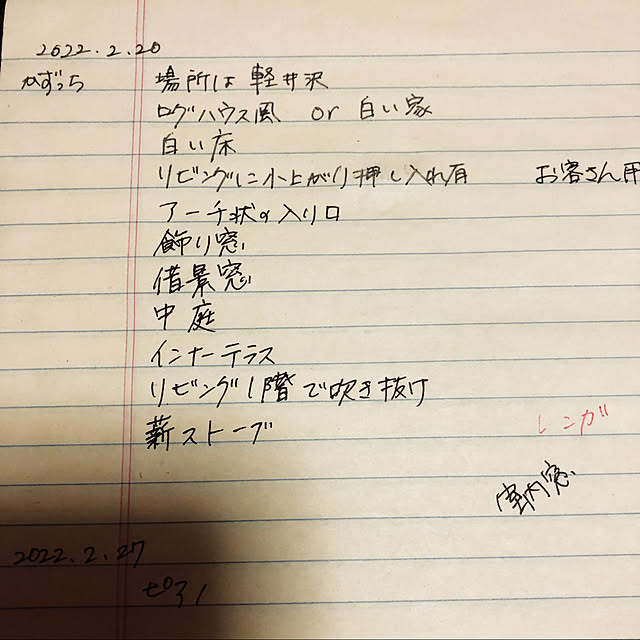 2022.2.20
かずっち 場所は 軽井沢
ログハウス風 or 白い家
白い床
リビングに小上がり押し入れ有 お客さん用
アーチ状の入り口
飾り窓
借景窓
中庭
インナーテラス
リビング1階で吹き抜け
薪ストーブ
レンガ
室内窓
2022.2.27
ピアノ